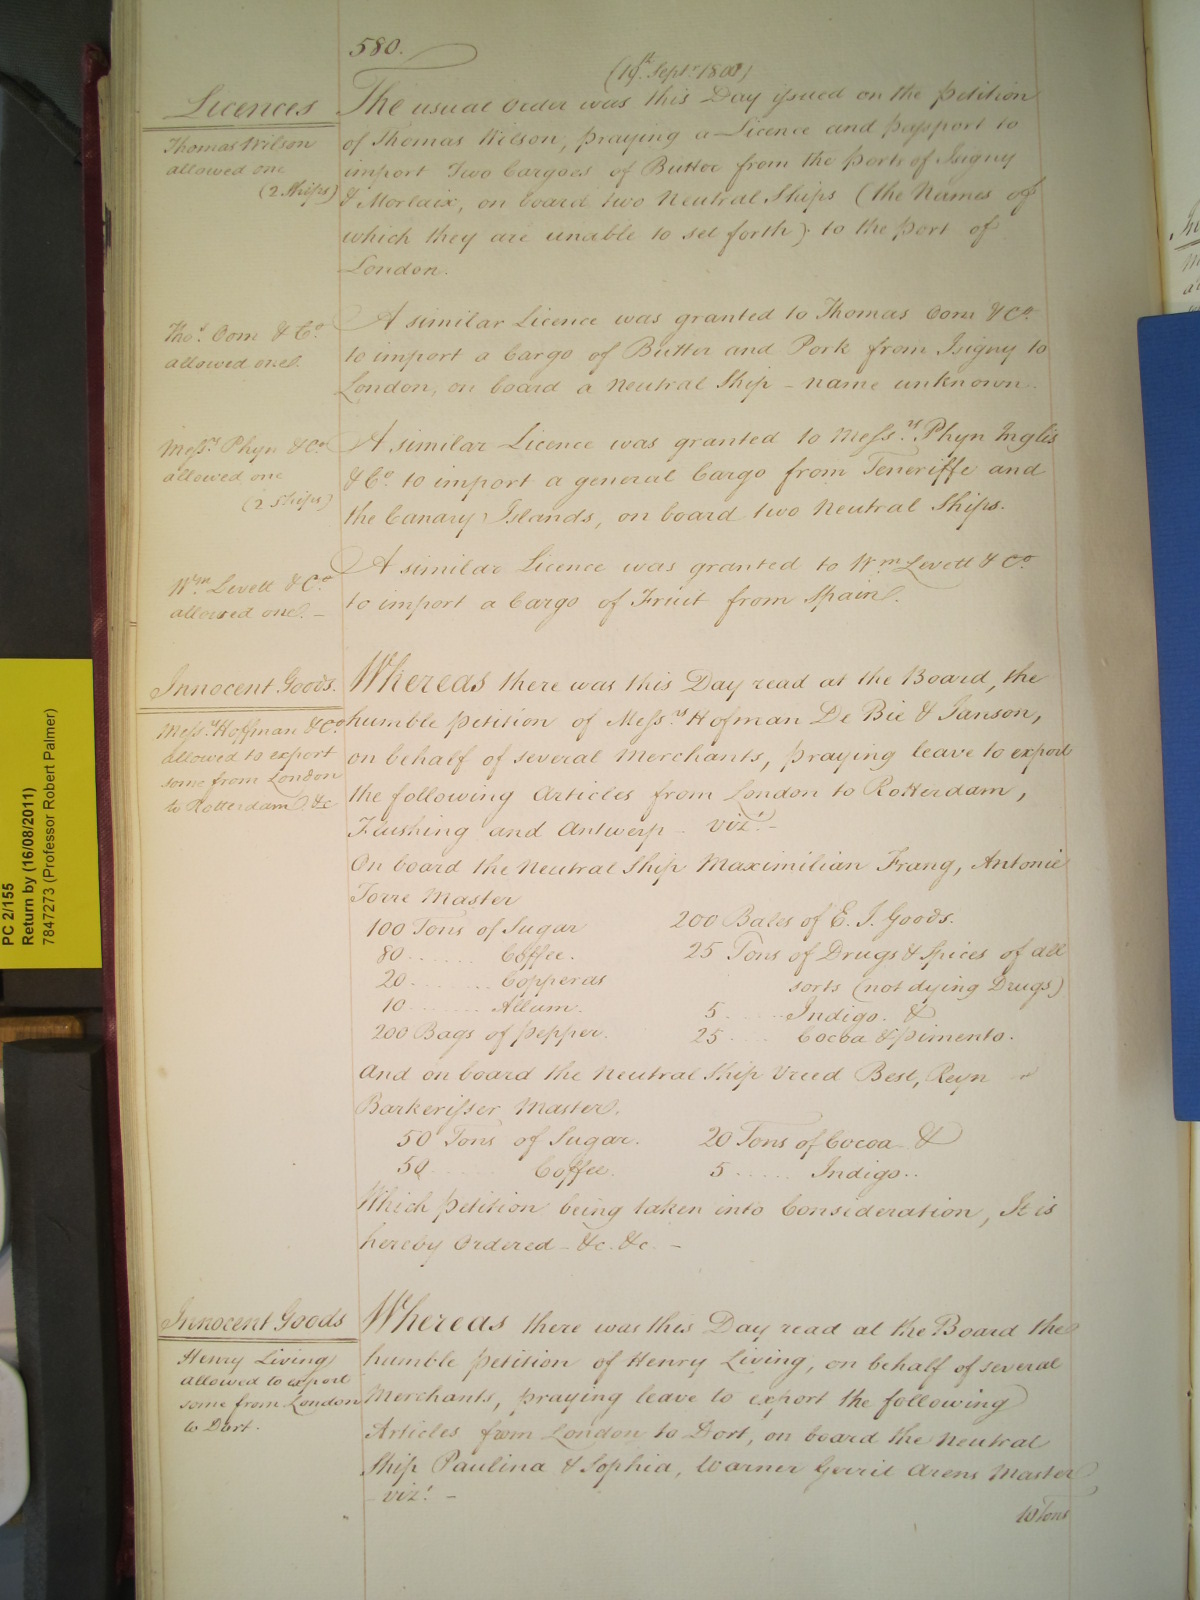 580.
(19th Septr. 1800)
Licences
The usual order was this Day issued on the petition
Thomas Wilson
allowed one
(2 Ships)
of Thomas Wilson, praying a Licence and passport to
import Two Cargoes of Butter from the ports of Isigny
& Morlaix, on board two Neutral Ships (the Names of
which they are unable to set forth) to the port of
London.
Thos. Oom & Co.
allowed one.
A similar Licence was granted to Thomas Oom & Co.
to import a Cargo of Butter and Pork from Isigny to
London, on board a Neutral Ship - name unknown.
Messrs. Phyn & Co.
allowed one
(2 Ships)
A similar Licence was granted to Messrs. Phyn Inglis
& Co. to import a general Cargo from Teneriffe and
the Canary Islands, on board two Neutral Ships.
Wm. Levett & Co.
allowed one. -
A similar Licence was granted to Wm. Levett & Co.
to import a Cargo of Fruit from Spain.
Innocent Goods.
Messrs. Hoffman & Co.
allowed to export
some from London
to Rotterdam &c
Whereas there was this Day read at the Board, the
humble petition of Messrs. Hofman De Bie & Janson,
on behalf of several Merchants, praying leave to export
the following Articles from London to Rotterdam,
Flushing and Antwerp - vizt. -
On board the Neutral Ship Maximilian Frang, Antonie
Torre Master
100 Tons of Sugar
80 ...... Coffee.
20 ...... Copperas
10 ...... Allum.
200 Bags of pepper.
200 Bales of E. I. Goods.
25 Tons of Drugs & Spices of all
sorts (not dying Drugs)
5 ..... Indigo. &
25 .... Cocoa & pimento.
And on board the Neutral Ship Vreed Best, Reyn
Barkerisser Master.
50 Tons of Sugar.
50 ...... Coffee.
20 Tons of Cocoa &
5 ..... Indigo..
Which petition being taken into Consideration, It is
hereby Ordered - &c. &c. -
Innocent Goods
Henry Living
allowed to export
some from London
to Dort.
Whereas there was this Day read at the Board the
humble petition of Henry Living, on behalf of several
Merchants, praying leave to export the following
Articles from London to Dort, on board the Neutral
Ship Paulina & Sophia, Warner Gerrit Arens Master
- vizt. -
10 Tons
PC 2/155
Return by (16/08/2011)
7847273 (Professor Robert Palmer)